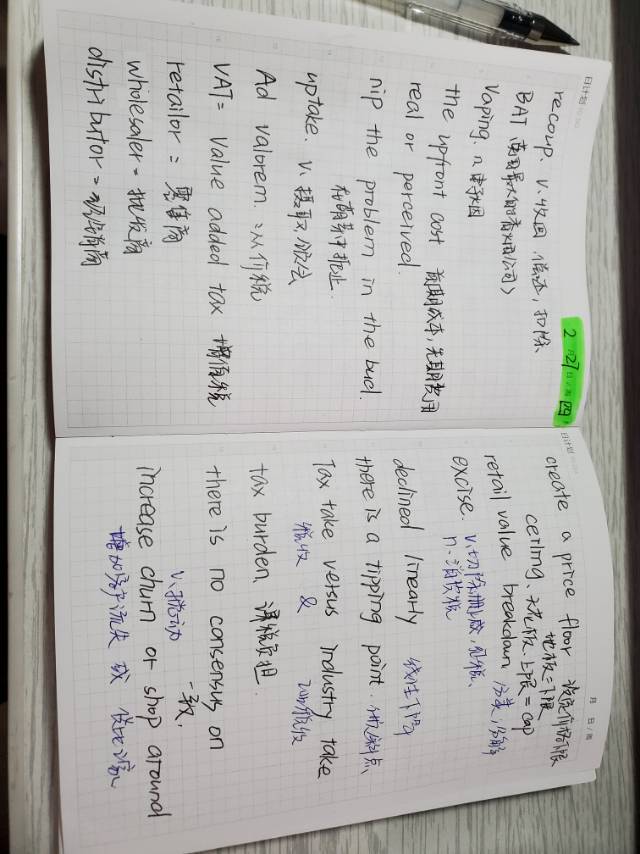 日计划
2月27日/周四
recoup. v. 收回 偿还, 扣除
BAT 英国最大的香烟公司>
Vaping. n. 电子烟
the upfront cost 前期成本, 先期费用
real or perceived.
nip the problem in the bud.
在萌芽中抑止.
uptake. v. 摄取 领会
Ad valorem. = 从价税
VAT = value added tax 增值税
retailor = 零售商
wholesaler = 批发商
distributor = 经销商
日计划
月 日/周
create a price floor 设定价格下限
地板=下限
ceiling. 天花板. 上限 = cap
retail value breakdown 分类, 分解
excise. v. 切除 删减, 征税.
n. 消费税
declined linearly 线性下降
there is a tipping point. 临界点
Tax take versus industry take
税收 &
tax burden 课税负担.
there is no consensus on
一致.
v. 搅动
increase churn or shop around
增加客户流失 或 货比三家